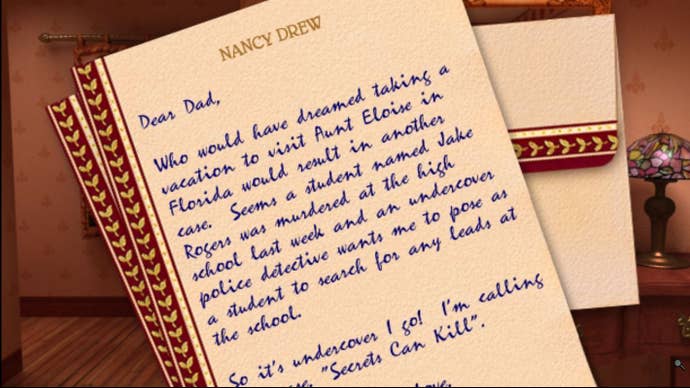 NANCY DREW
Dear Dad,
Who would have dreamed taking a
vacation to visit Aunt Eloise in
Florida would result in another
case. Seems a student named Jake
Rogers was murdered at the high
school last week and an undercover
police detective wants me to pose as
a student to search for any leads at
the school.
So it's undercover I go! I'm calling
"Secrets Can Kill".
Love,